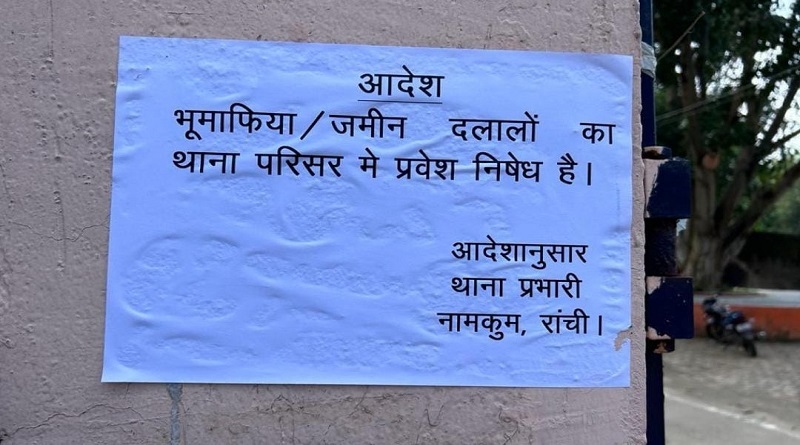 आदेश
भूमाफिया/जमीन दलालों का
थाना परिसर मे प्रवेश निषेध है।
आदेशानुसार
थाना प्रभारी
नामकुम, रांची।